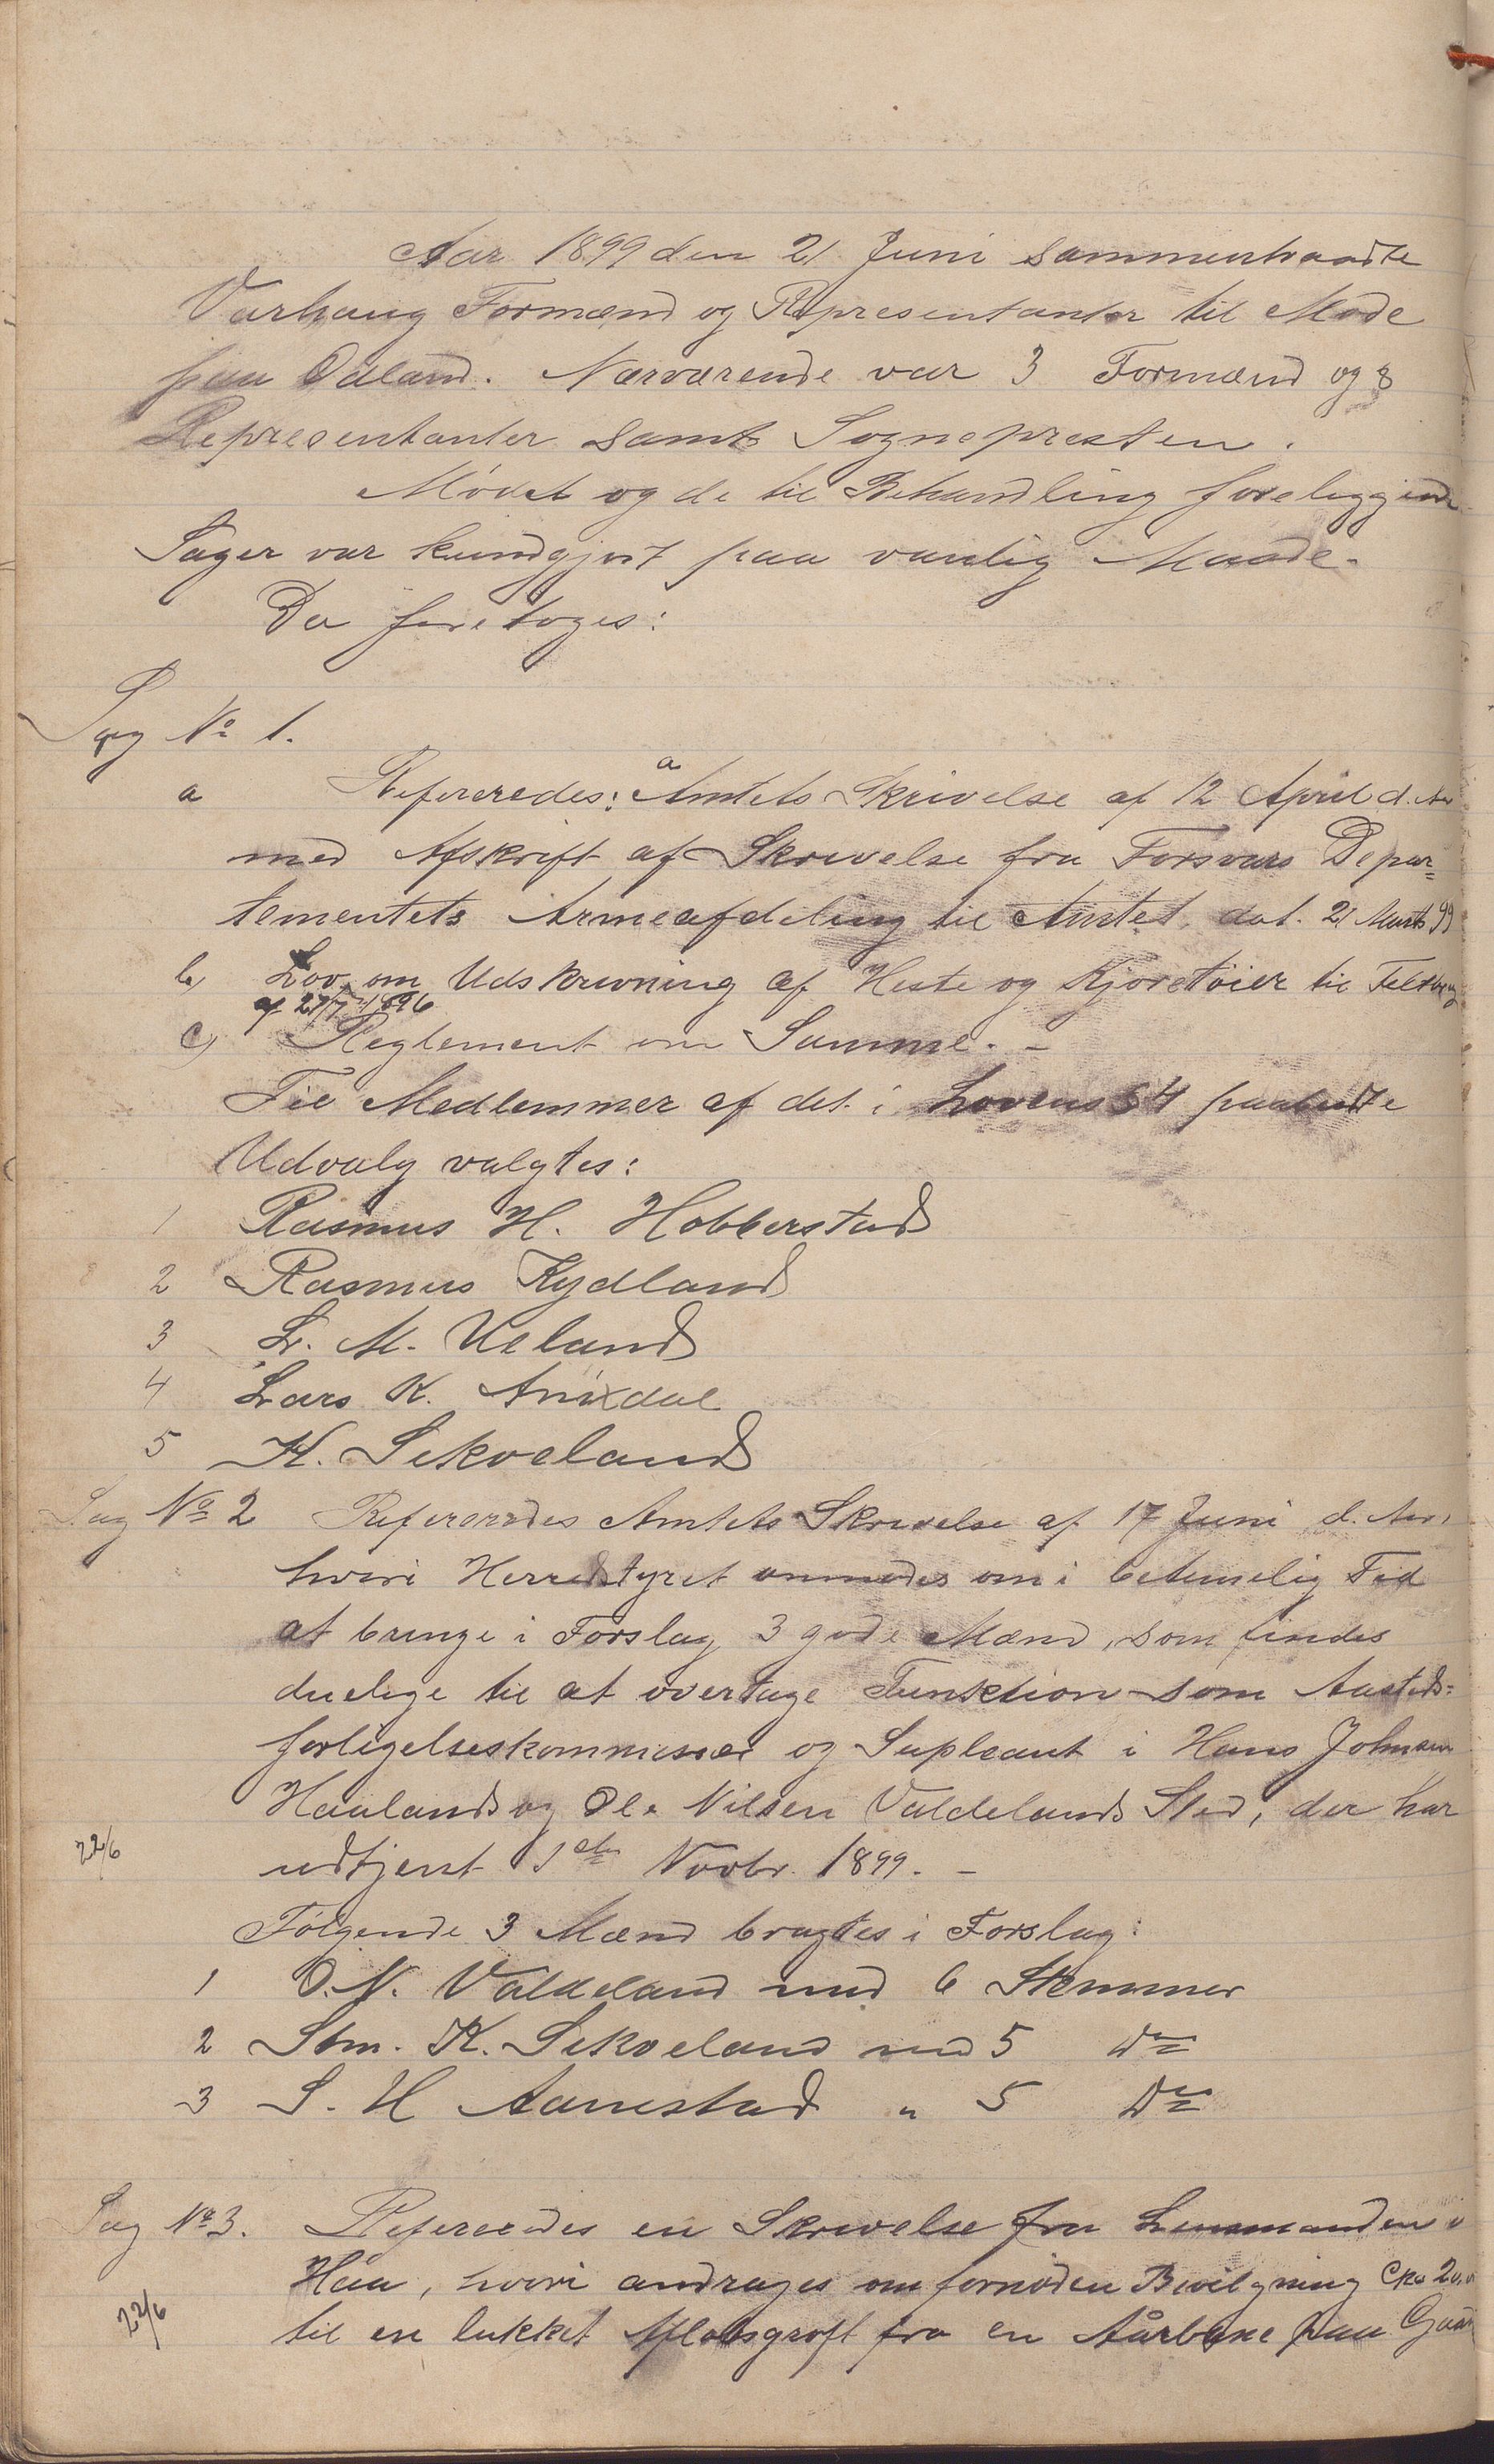 Aar 1899 den 21 Juni sammentraadte
Varhaug Formænd og Representanter til Møde
paa Odland. Nærværende var 3 Formænd og 8
Representanter samt Sognepresten.
Mødet og de til Behandling foreliggende
Sager var kundgjort paa vanlig Maade.
Da foretoges:
Sag No 1.
a Refereredes: a Amtets Skrivelse af 12 April d. Aar
med Afskrift af Skrivelse fra Forsvars Depar=
tementets Armeafdeling til Amtet, dat. 21 Marts 99
b) Lov om Udskrivning af Heste og Kjøretøier til Feltbrug
af 27/7 1896
c) Reglement om Samme. -
Til Medlemmer af det i Lovens § 4 paabudte
Udvalg valgtes:
1 Rasmus H. Hobberstad
2 Rasmus Kydland
3 L. M. Ueland
4 Lars K. Anixdal
5 K. Sikveland
Sag No 2 Refereredes Amtets Skrivelse af 17 Juni d. Aar,
hvori Herredstyret anmodes om i betimelig Tid
at bringe i Forslag 3 gode Mænd, som findes
duelige til at overtage Funktion som Aasteds=
forligelseskommissær og Supleant i Hans Johnsen
Haaland og Ole Nilsen Valdelands Sted, der har
22/6 udtjent 1ste Novbr. 1899. -
Følgende 3 Mænd bragtes i Forslag:
1 O. N. Valdeland med 6 Stemmer
2 Sbm. K. Sikveland med 5 Do
3 S. H Aanestad " 5 Do
Sag No 3. Refereredes en Skrivelse fra Lensmanden i
Håa, hvori andrages om fornøden Bevilgning
22/6 til en lukket Afløbsgrøft fra en paa Gaar